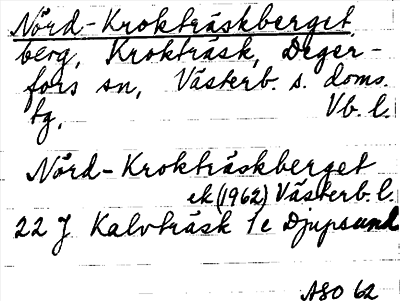 Nord-Krokträskberget
berg, Krokträsk, Deger-
fors sn, Västerb. s. doms.
tg, Vb. l.
Nord-Krokträskberget
ek (1962) Västerb. l.
22 J Kalvträsk 1e Djupsund
ASO 62